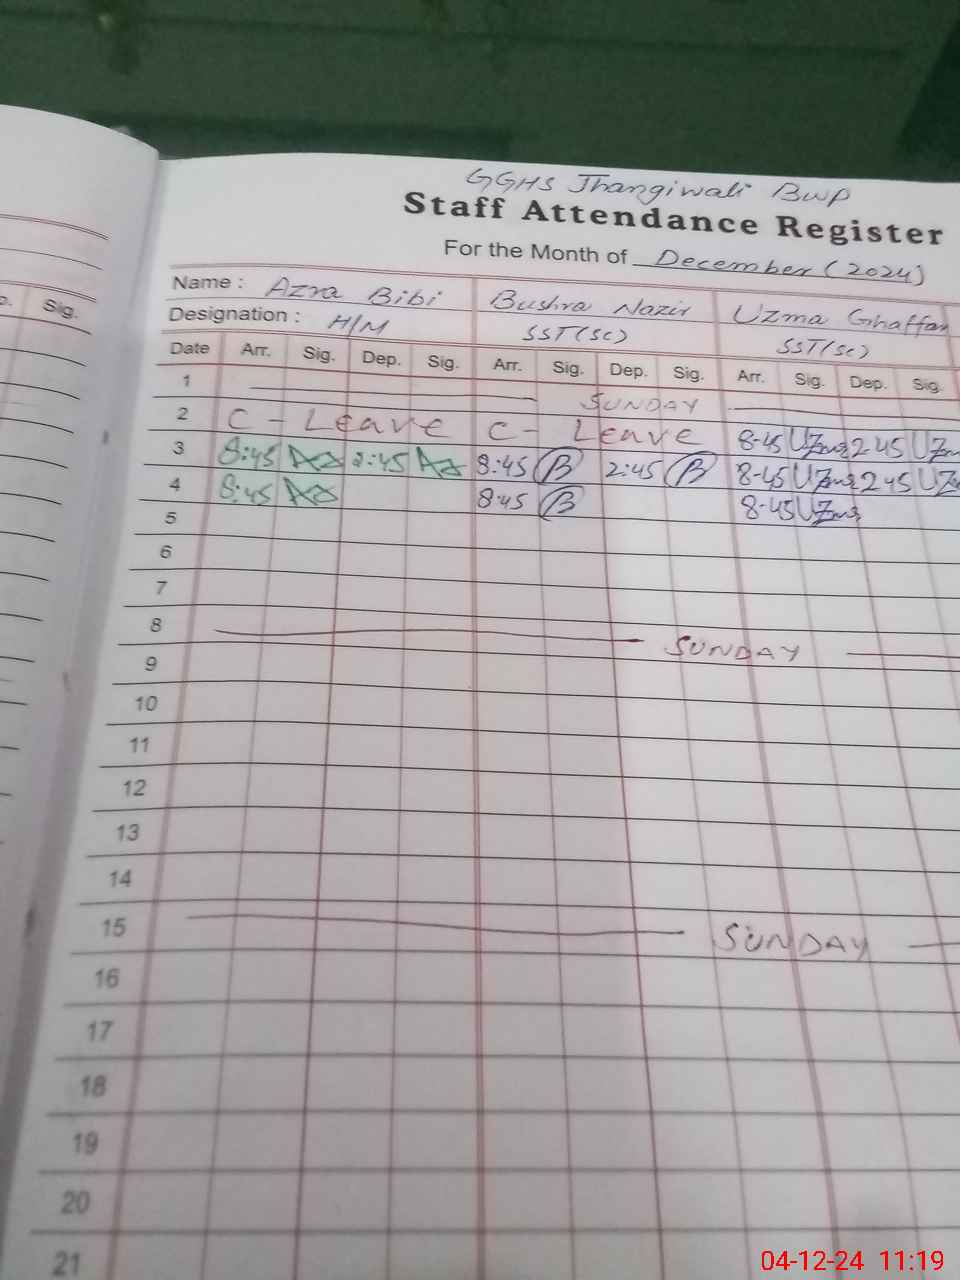 GGHS Jhangiwali BWP
Staff Attendance Register
For the Month of December (2024)
Name : Azra Bibi Bushra Nazir Uzma Ghaffar
Designation : H/M SST(SC) SST(SC)
Sig.
Date Arr. Sig. Dep. Sig. Arr. Sig. Dep. Sig. Arr. Sig. Dep. Sig.
1 SUNDAY
2 C - Leave C - Leave 8-45 Uzma 2 45 Uzma
3 8:45 Az 2:45 Az 8:45 B 2:45 B 8-45 Uzma 2 45 Uz
4 8:45 Az 8:45 B 8-45 Uzma
5
6
7
8 SUNDAY
9
10
11
12
13
14
15 SUNDAY
16
17
18
19
20
21
04-12-24 11:19